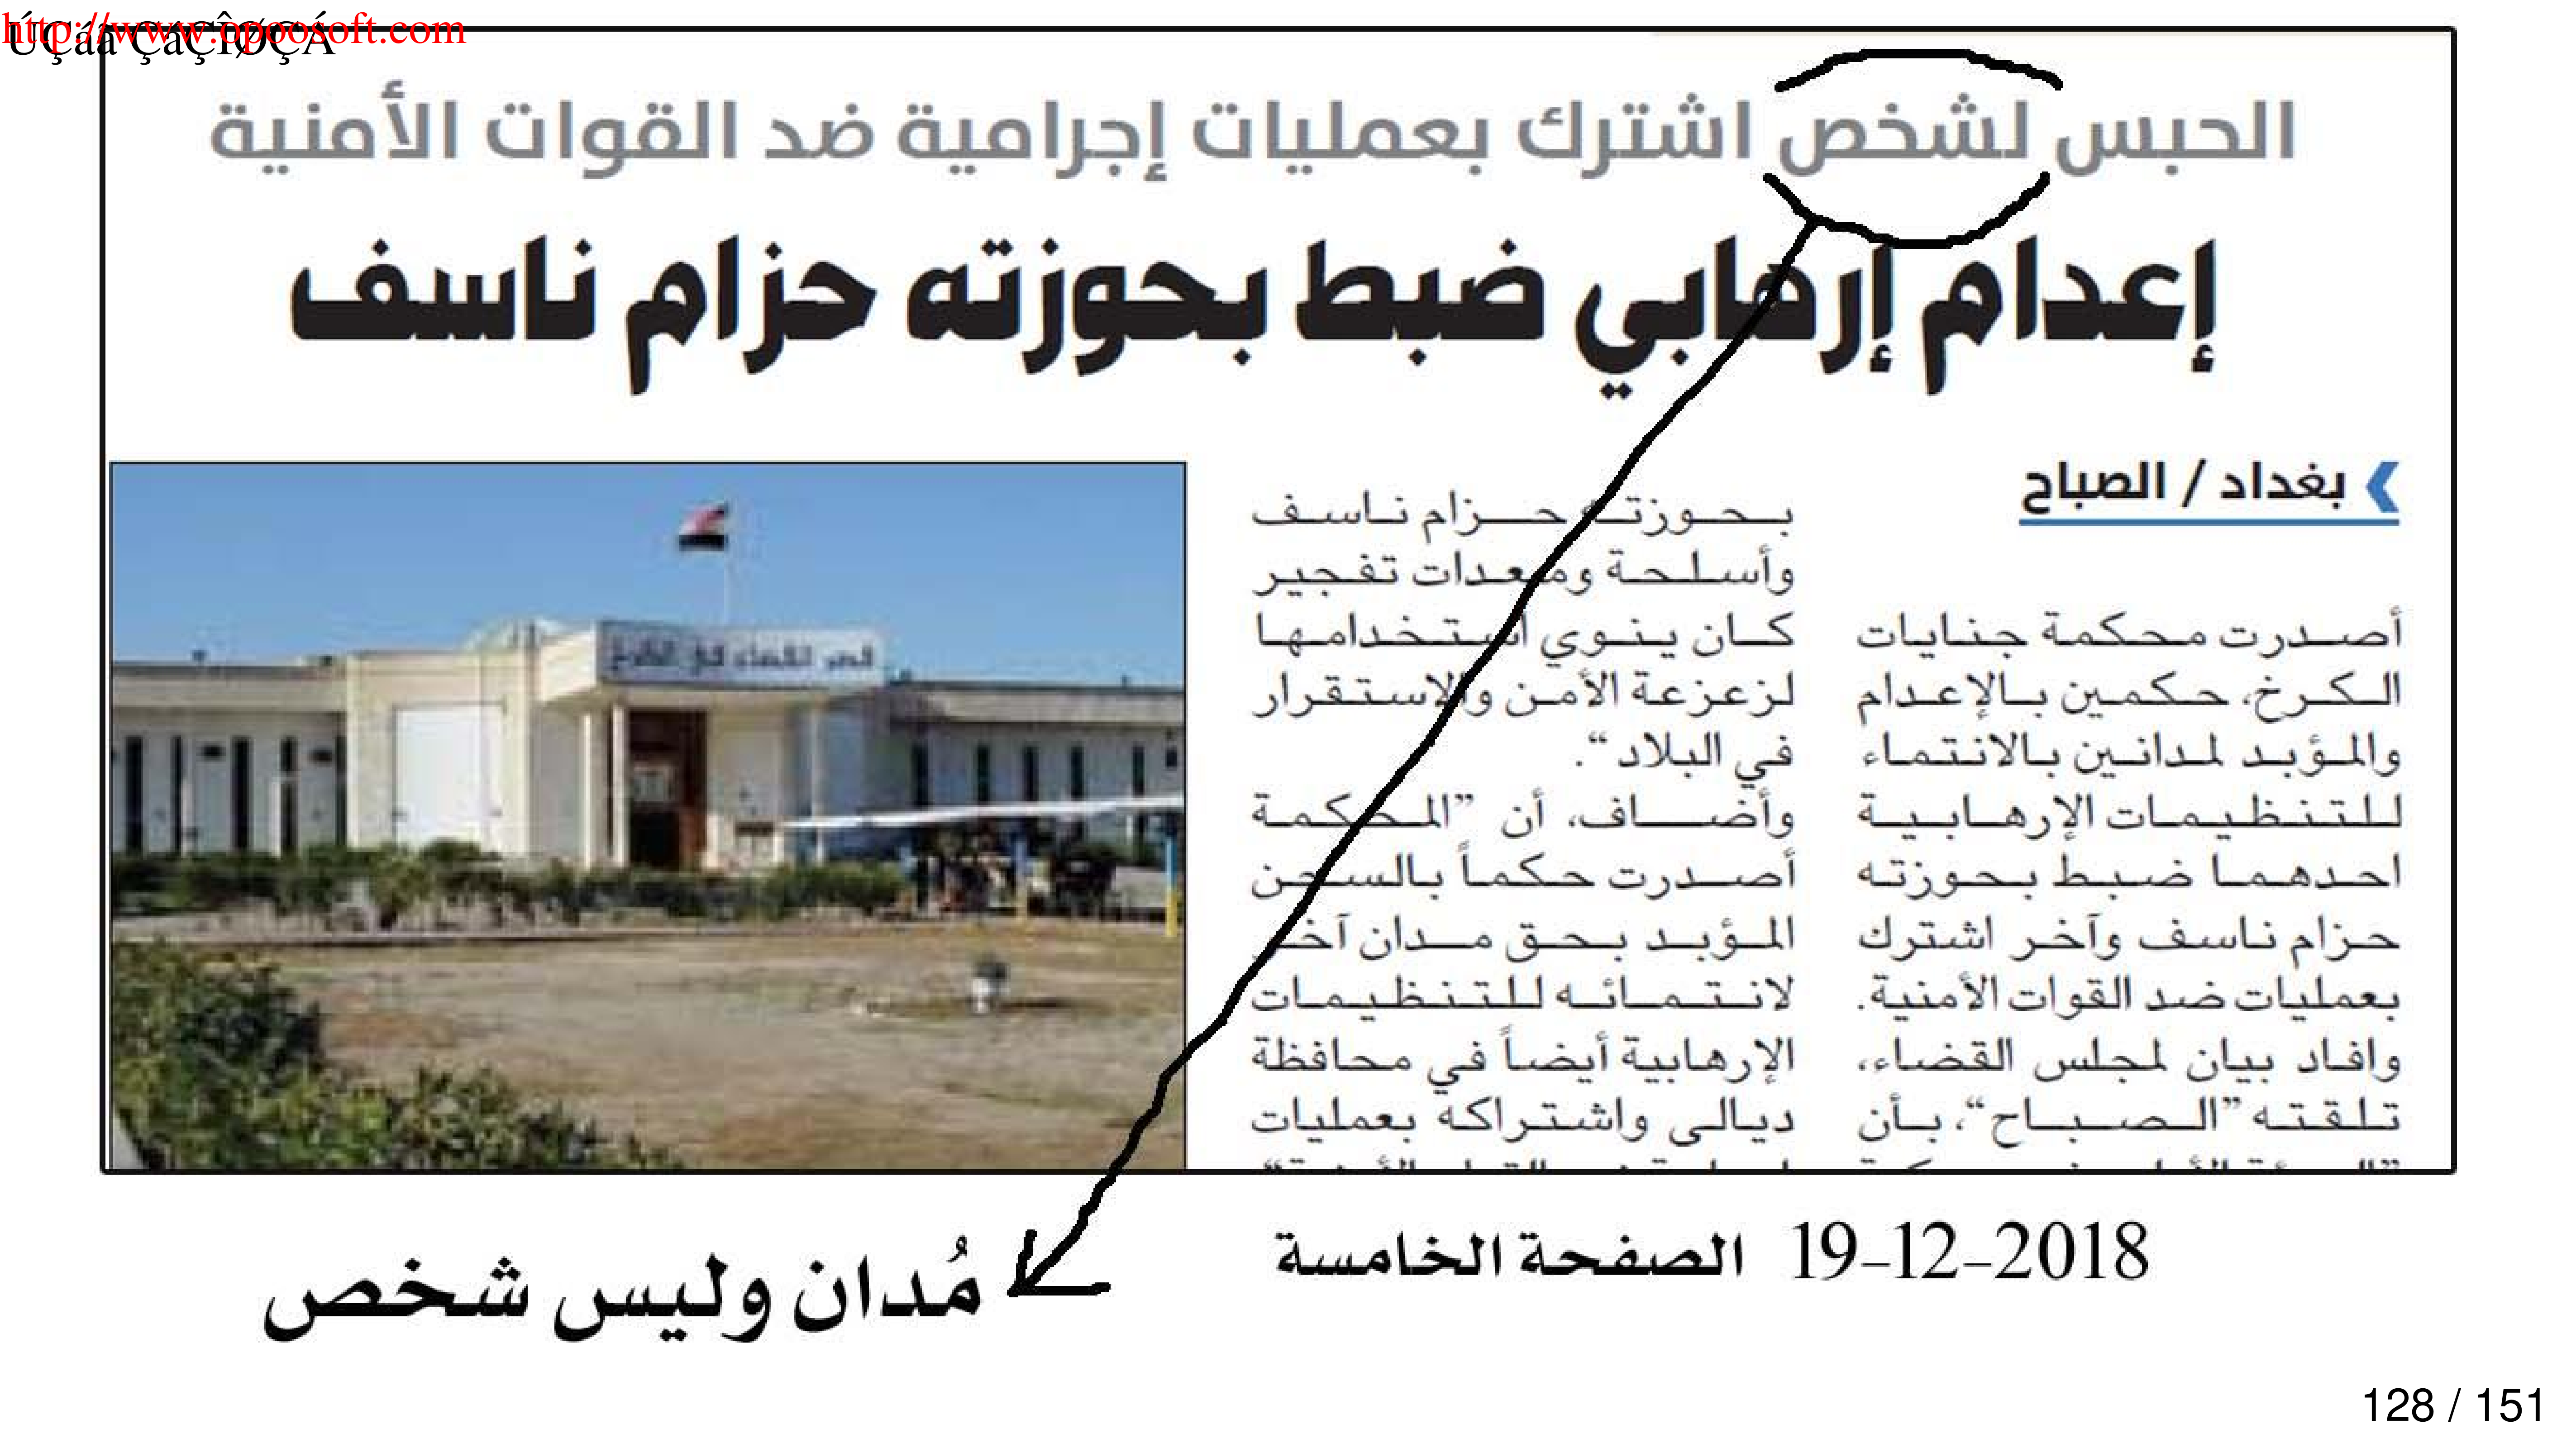 http://www.opoosoft.com
ÚÇáã ÇáÇÎØÇÁ
الحبس لشخص اشترك بعمليات إجرامية ضد القوات الأمنية
إعدام إرهابي ضبط بحوزته حزام ناسف
بغداد / الصباح
أصدرت محكمة جنايات
الكرخ، حكمين بالإعدام
والمؤبد لمدانين بالانتماء
للتنظيمات الإرهابية
احدهما ضبط بحوزته
حزام ناسف وآخر اشترك
بعمليات ضد القوات الأمنية.
وافاد بيان لمجلس القضاء،
تلقته ”الصباح“، بأن
بحوزته حزام ناسف
وأسلحة ومعدات تفجير
كان ينوي استخدامها
لزعزعة الأمن والاستقرار
في البلاد“.
وأضاف، أن ”المحكمة
أصدرت حكماً بالسجن
المؤبد بحق مدان آخر
لانتمائه للتنظيمات
الإرهابية أيضاً في محافظة
ديالى واشتراكه بعمليات
19-12-2018 الصفحة الخامسة
مُدان وليس شخص
128 / 151